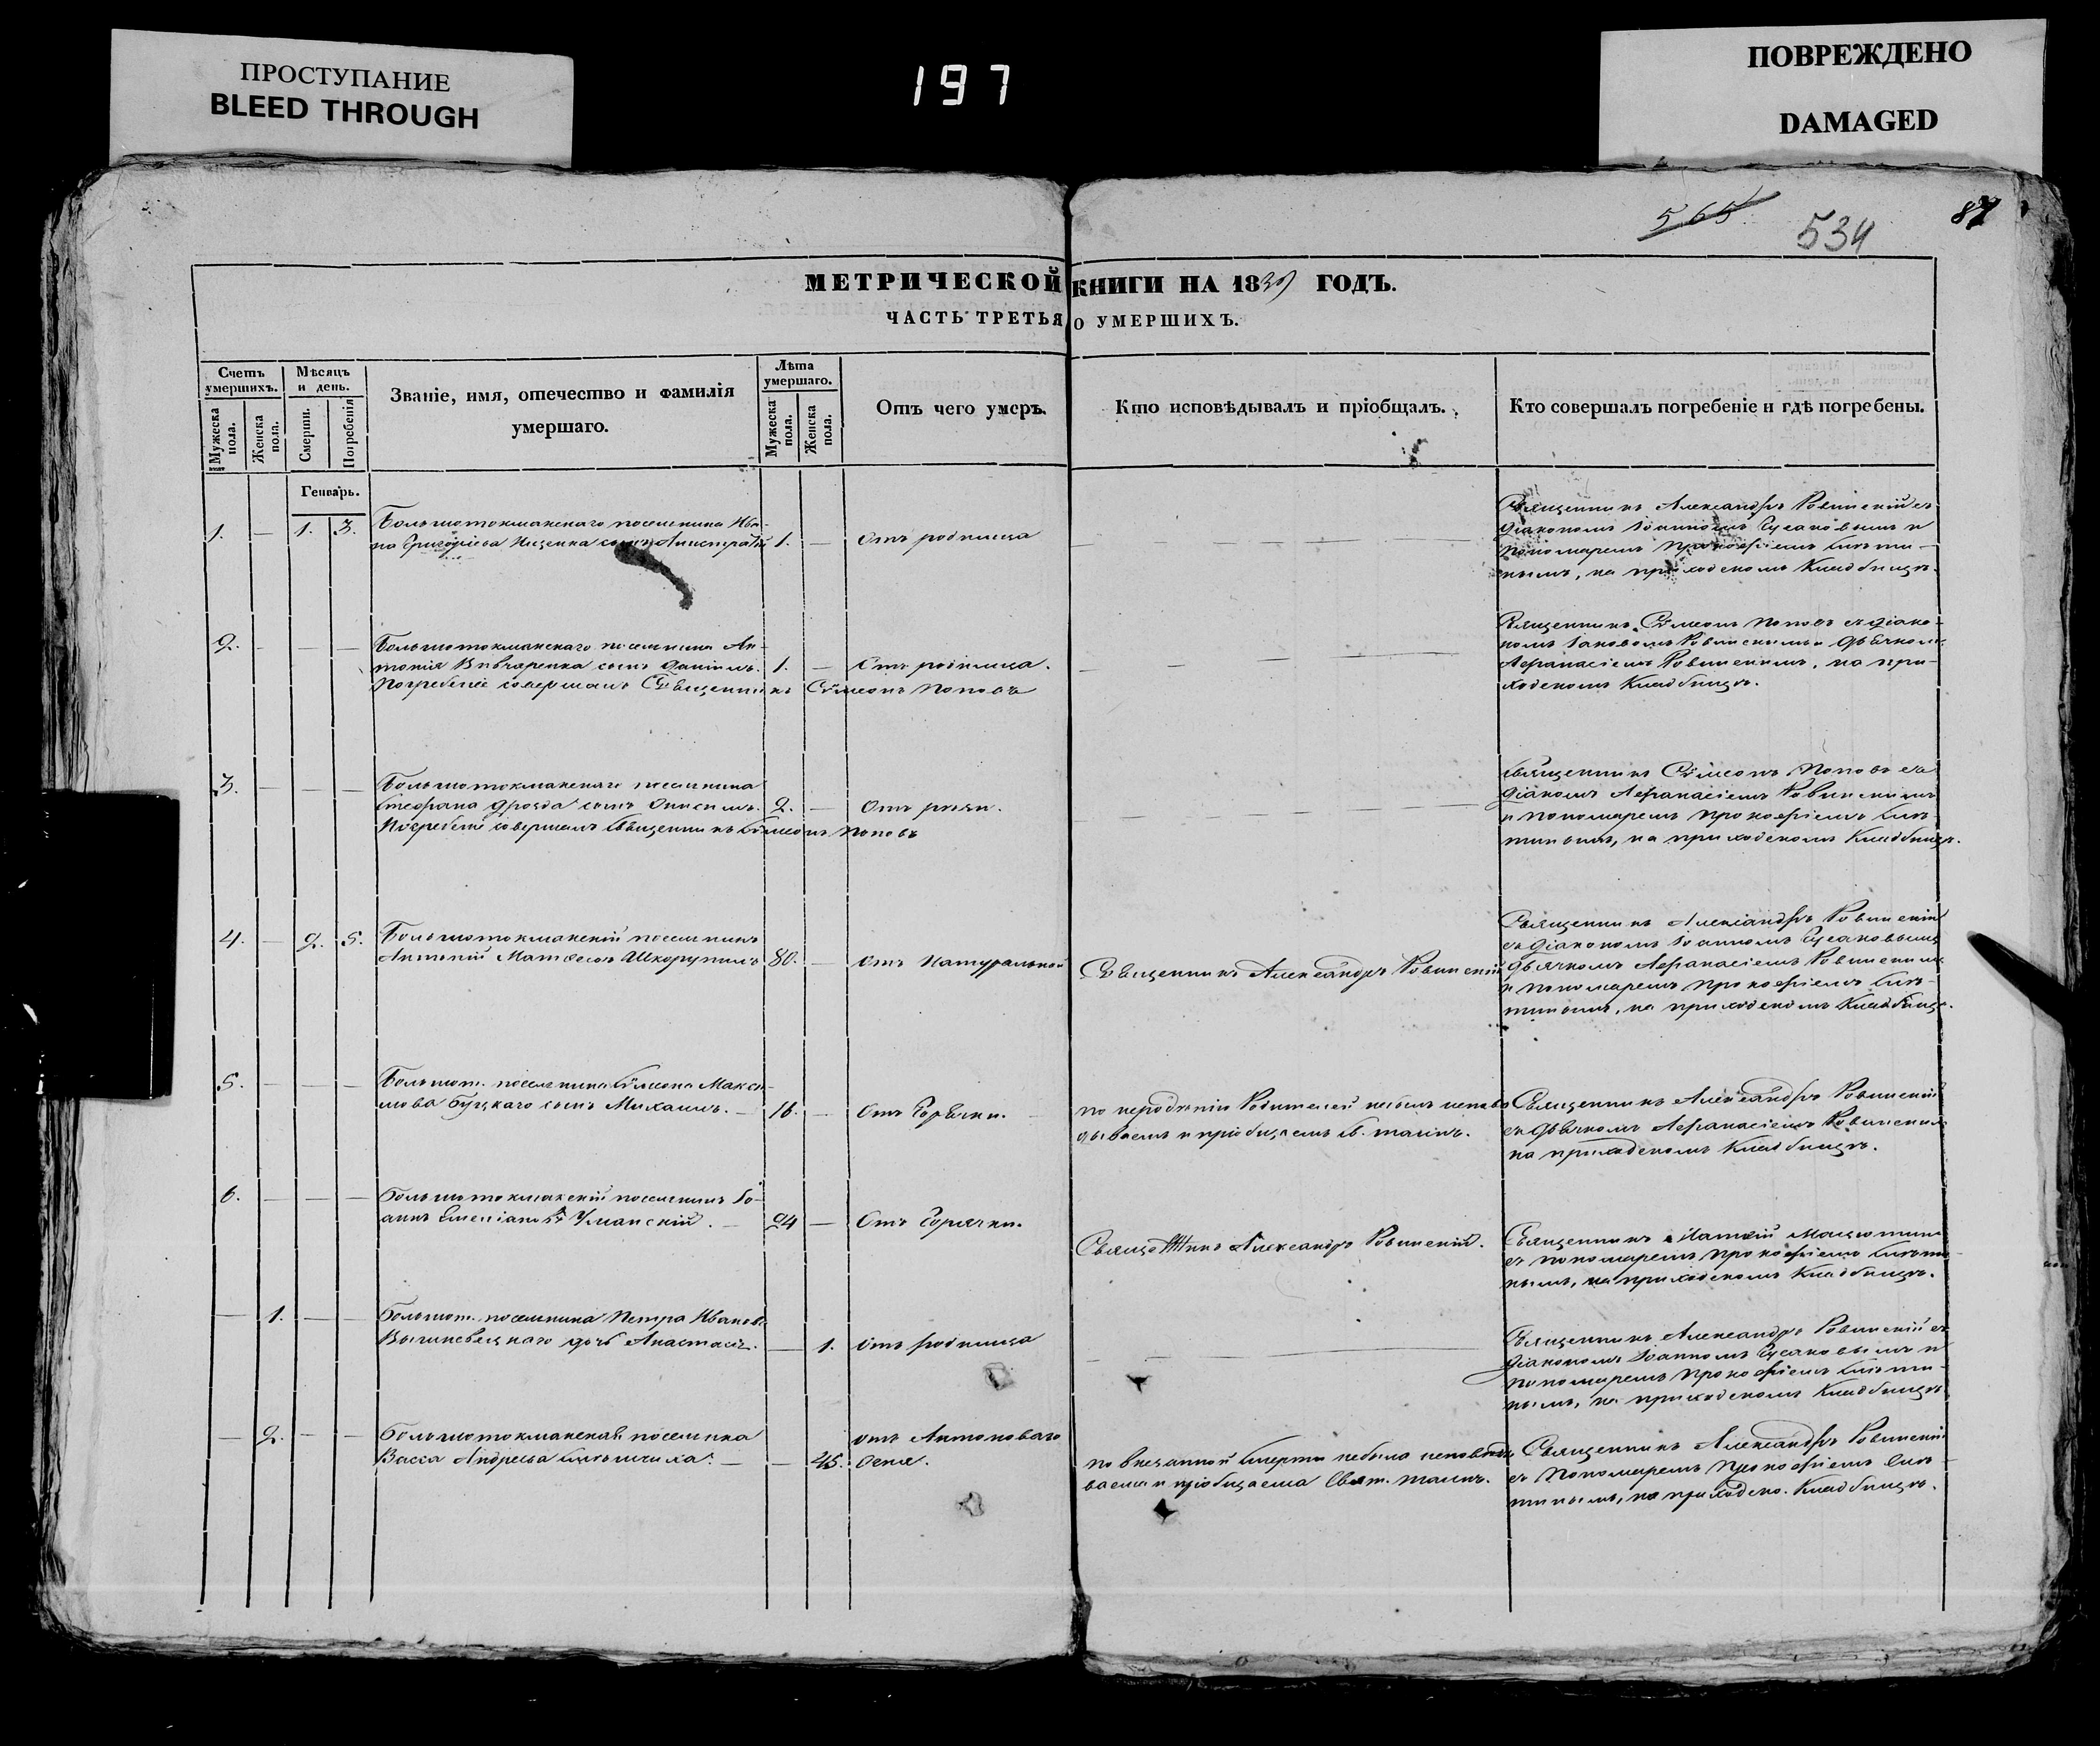 ПРОСТУПАНИЕ
BLEED THROUGH
197
ПОВРЕЖДЕНО
DAMAGED
565
534
87
МЕТРИЧЕСКОЙ КНИГИ НА 1839 ГОДЪ.
ЧАСТЬ ТРЕТЬЯ О УМЕРШИХЪ.
Счетъ умершихъ.
Мужеска пола.
Женска пола.
Мѣсяцъ и день.
Смерти.
Погребенія
Званіе, имя, отечество и фамилія умершаго.
Лѣта умершаго.
Мужеска пола.
Женска пола.
Отъ чего умеръ.
Кто исповѣдывалъ и пріобщалъ.
Кто совершалъ погребеніе и гдѣ погребены.
Генварь.
1. — 1. 3.
Большотокмакскаго поселянина Ива-
на Григоріева Ищенка сынъ
1. — Отъ родимца
Священникъ Александръ Ровинскій съ
діакономъ Іоанномъ Гусаковымъ и
пономаремъ Прокофіемъ
на приходскомъ кладбищѣ.
2. — — —
Большотокмакскаго поселянина Ан-
тонія Вивчаренка сынъ Даніилъ.
Погребеніе совершалъ Священникъ Сѵмеонъ Поповъ
1. — Отъ родимца.
Священникъ Сѵмеонъ Поповъ съ діако-
номъ Іаковомъ Ровинскимъ и дьячкомъ
Афанасіемъ Ровинскимъ, на при-
ходскомъ кладбищѣ.
3. — — —
Большотокмакскаго поселянина
Стефана Дрозда сынъ Онисимъ.
Погребеніе совершалъ Священникъ Сѵмеонъ Поповъ
2. —
Священникъ Сѵмеонъ Поповъ съ
Афанасіемъ Ровинскимъ
и пономаремъ Прокофіемъ
на приходскомъ кладбищѣ.
4. — 2. 5.
Большотокмакскій поселянинъ
Антоній Матѳеевъ Шкорупилъ
80. — Отъ натуральной
Священникъ Александръ Ровинскій
Священникъ Александръ Ровинскій
съ діакономъ Іоанномъ Гусаковымъ
дьячкомъ Афанасіемъ Ровинскимъ
и пономаремъ Прокофіемъ
на приходскомъ кладбищѣ.
5. — — —
Большот. поселянина Сѵмеона Макси-
мова Буцкаго сынъ Михаилъ. —
16. — Отъ горячки.
по нерадѣнію родителей небылъ исповѣ-
дываемъ и пріобщаемъ Св. таинъ.
Священникъ Александръ Ровинскій
съ дьячкомъ Афанасіемъ Ровинскимъ
на приходскомъ кладбищѣ.
6. — — —
Большотокмакскій поселянинъ Іо-
аннъ Емеліановъ Уманскій. —
24 — Отъ горячки.
Священникъ Александръ Ровинскій.
Священникъ
съ пономаремъ Прокофіемъ
на приходскомъ кладбищѣ.
— 1. — —
Большот. поселянина Петра Иванова
дочь Анастасія.
— 1. Отъ родимца
Священникъ Александръ Ровинскій съ
діакономъ Іоанномъ Гусаковымъ и
пономаремъ Прокофіемъ
на приходскомъ кладбищѣ.
— 2. — —
Большотокмакская поселянка
Васса Андреева
— 45. отъ Антоноваго
огня.
по внезапной смерти небыла исповѣды-
ваема и пріобщаема Свят. таинъ.
Священникъ Александръ Ровинскій
съ пономаремъ Прокофіемъ
на приходско. кладбищѣ.